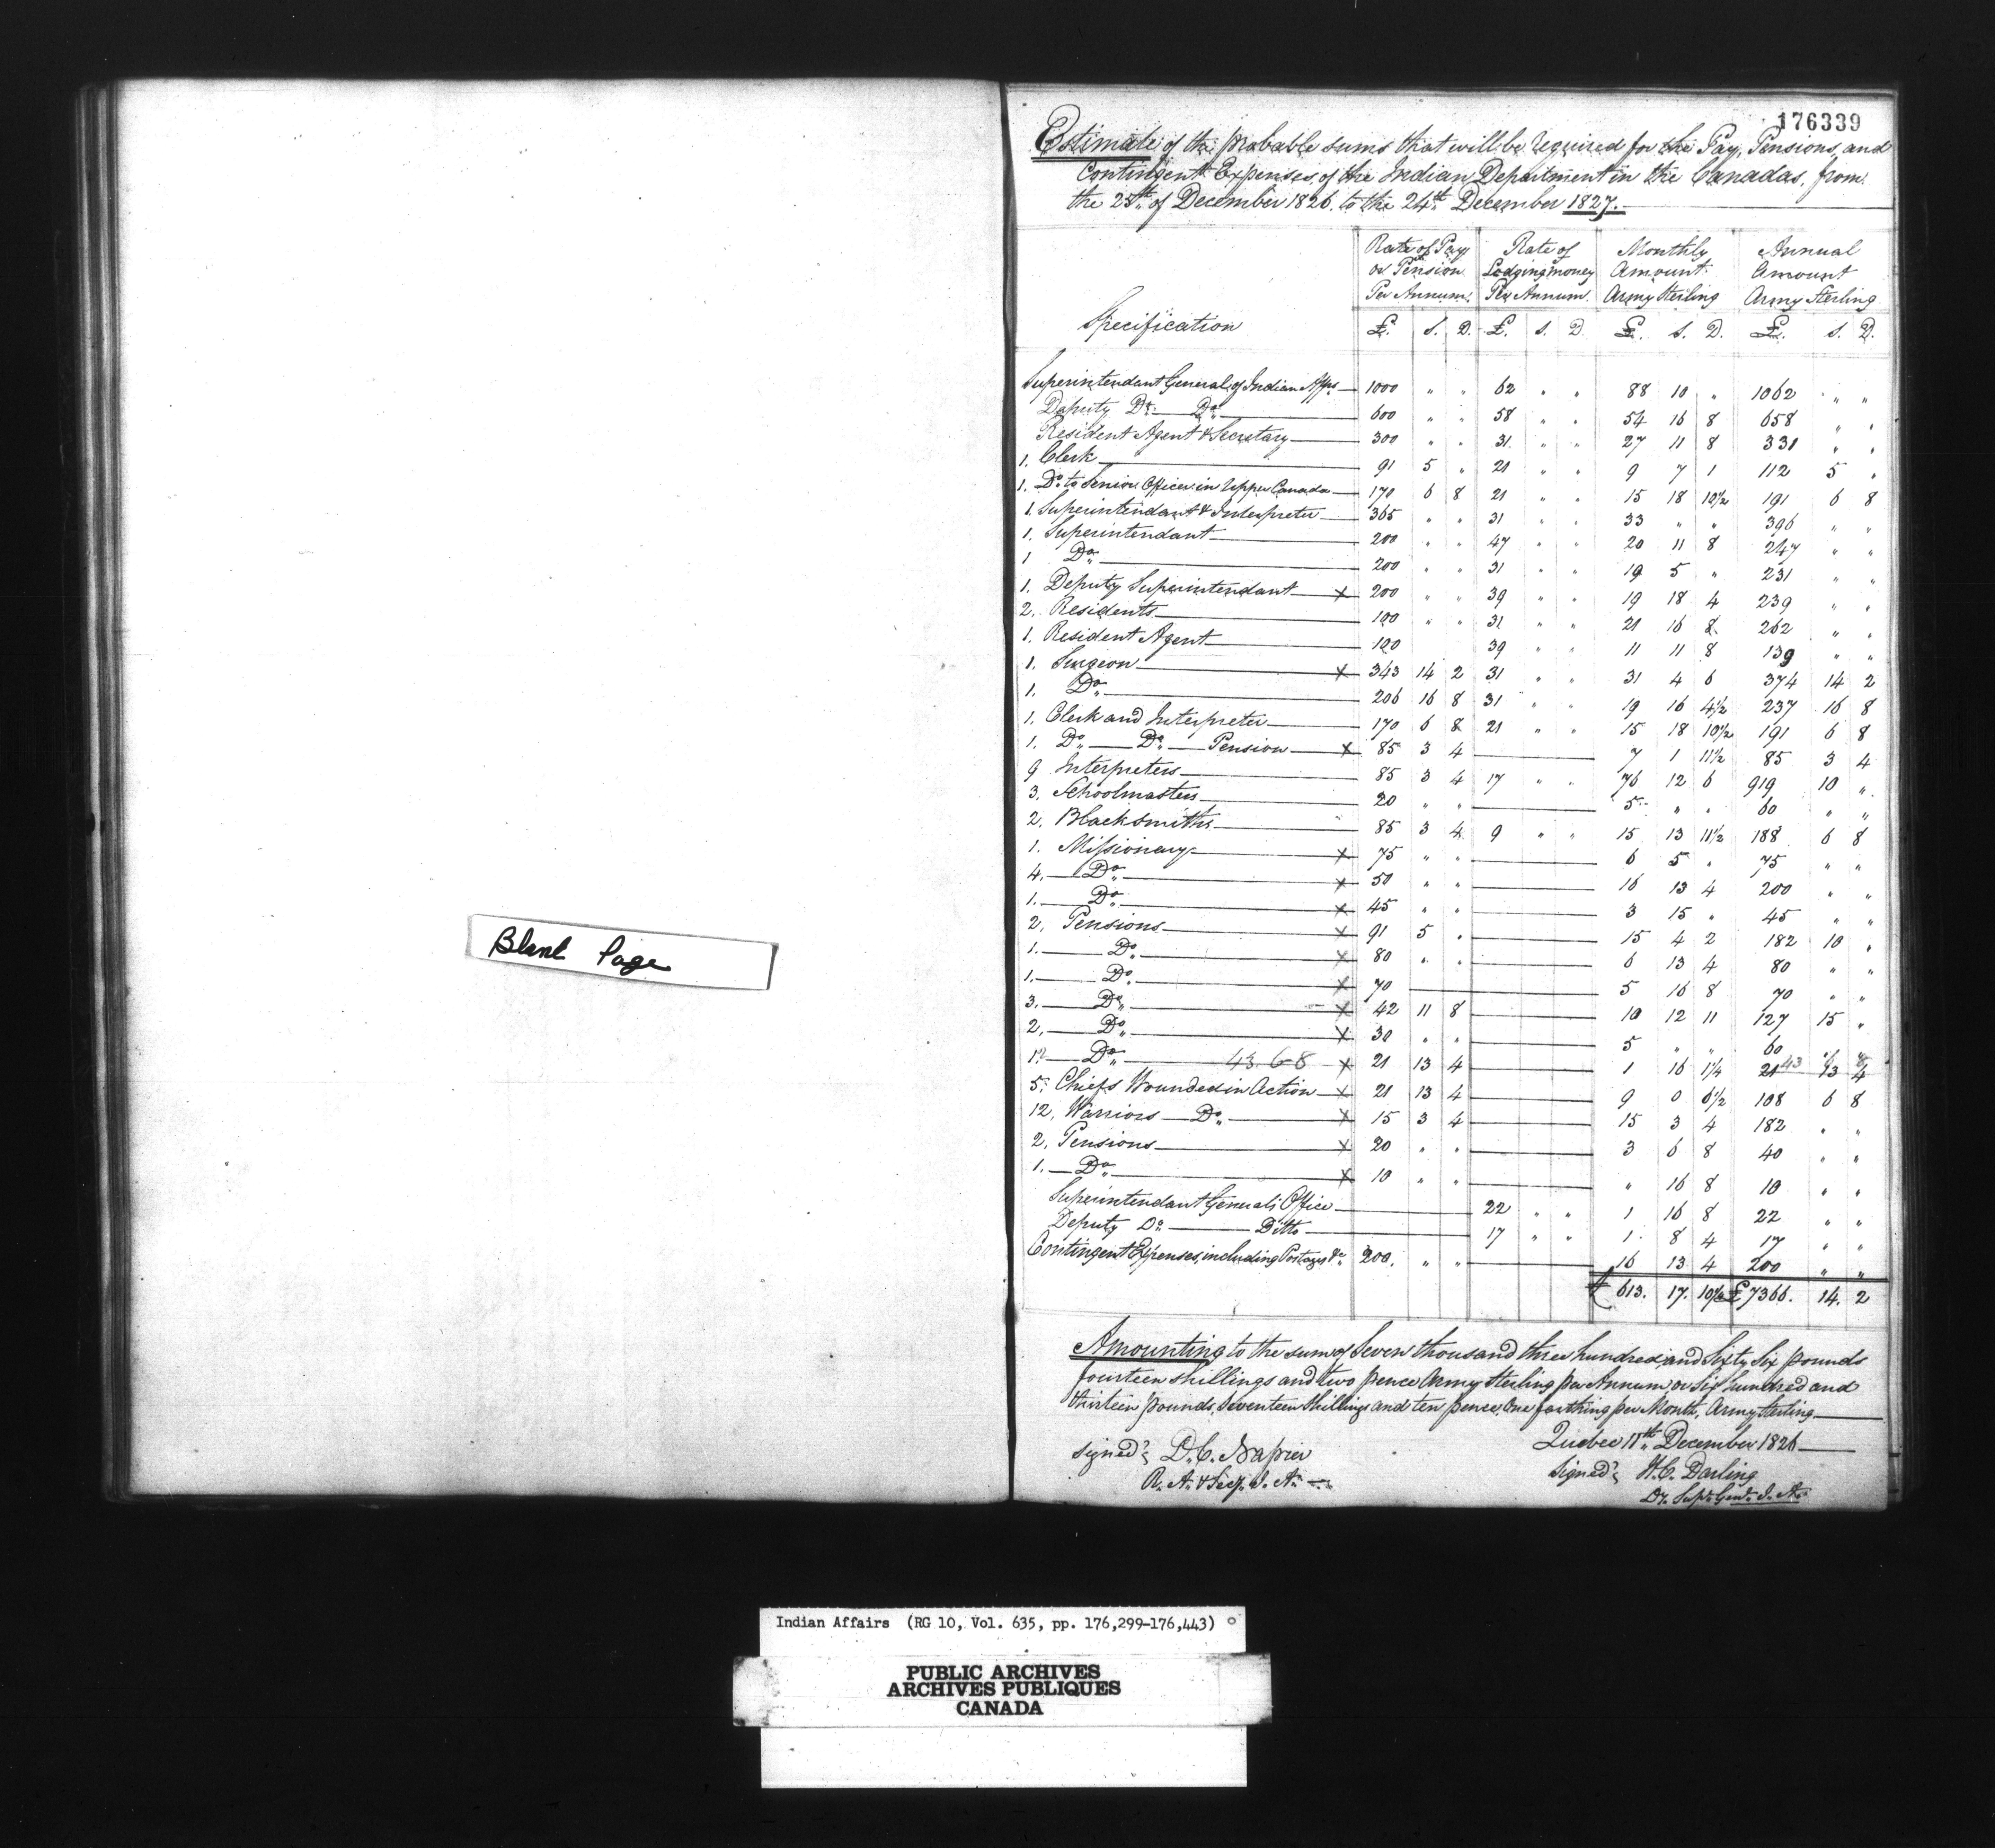 Blank Page
176339
Estimate of the probable sums that will be required for the Pay, Pensions, and
Contingent Expenses, of the Indian Department in the Canadas, from
the 25th of December 1826. to the 24th December 1827.
Specification
Rate of Pay or Pension Per Annum. Rate of Lodging money Per Annum. Monthly Amount. Army Sterling Annual Amount Army Sterling
£. S. D. £. S. D. £. S. D. £. S. D.
Superintendant General of Indian Affrs 1000 " " 62 " " 88 10 " 1062 " "
Deputy Do. Do. 600 " " 58 " " 54 16 8 658 " "
Resident Agent & Secretary 300 " " 31 " " 27 11 8 331 " "
1. Clerk 91 5 " 21 " " 9 7 1 112 5 "
1. Do. to Senior Officer in Upper Canada 170 6 8 21 " " 15 18 10½ 191 6 8
1. Superintendant & Interpreter 365 " " 31 " " 33 " " 396 " "
1. Superintendant 200 " " 47 " " 20 11 8 247 " "
1 Do. 200 " " 31 " " 19 5 " 231 " "
1. Deputy Superintendant x 200 " " 39 " " 19 18 4 239 " "
2. Residents 100 " " 31 " " 21 16 8 262 " "
1. Resident Agent 100 39 " " 11 11 8 139 " "
1. Surgeon x 343 14 2 31 " " 31 4 6 374 14 2
1. Do. 206 16 8 31 " " 19 16 4½ 237 16 8
1. Clerk and Interpreter 170 6 8 21 " " 15 18 10½ 191 6 8
1. Do. Do. Pension x 85 3 4 7 1 11½ 85 3 4
9 Interpreters 85 3 4 17 " " 76 12 6 919 10 "
3. Schoolmasters 20 " " 5 " " 60 " "
2. Blacksmiths 85 3 4 9 " " 15 13 11½ 188 6 8
1. Missionary x 75 " " 6 5 " 75 " "
4. Do. x 50 " " 16 13 4 200 " "
1. Do. x 45 " " 3 15 " 45 " "
2. Pensions x 91 5 " 15 4 2 182 10 "
1. Do. x 80 " " 6 13 4 80 " "
1. Do. x 70 5 16 8 70 " "
3. Do. x 42 11 8 10 12 11 127 15 "
2. Do. x 30 " " 5 " " 60 " "
1 Do. 43.6.8 x 21 13 4 1 16 1¼ 21 13 4
5. Chiefs Wounded in Action x 21 13 4 9 0 6½ 108 6 8
12. Warriors Do. x 15 3 4 15 3 4 182 " "
2. Pensions x 20 " " 3 6 8 40 " "
1. Do. x 10 " " " 16 8 10 " "
Superintendant General's Office 22 " " 1 16 8 22 " "
Deputy Do. Ditto 17 " " 1 8 4 17 " "
Contingent Expenses, including Postages &c. 200. " " 16 13 4 200 " "
£ 613. 17. 10¼ £7366. 14. 2
Amounting to the sum of Seven thousand three hundred and Sixty Six pounds
fourteen shillings and two pence Army Sterling per Annum, or Six hundred and
thirteen pounds, Seventeen Shillings and ten pence, One farthing per Month, Army Sterling
Quebec 11th December 1826
signed D.C. Napier
R. A. & Secy. I. A.
signed H.C. Darling
Dy. Supt. Genl. I. A.
Indian Affairs (RG 10, Vol. 635, pp. 176,299-176,443)
PUBLIC ARCHIVES
ARCHIVES PUBLIQUES
CANADA